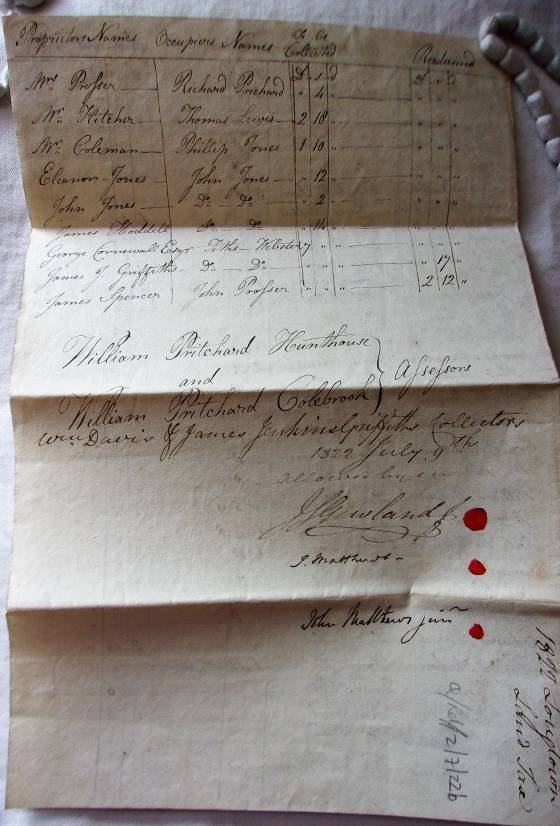 Proprietors Names Occupiers Names To be Collected Redeemed
£ s d £ s d
Mrs Prosser — Richard Prichard " 4 " " " "
Mr. Hitcher — Thomas Lewis — 2 18 " " " "
Mr. Coleman — Phillip Jones 1 10 " " " "
Eleanor Jones — John Jones — " 12 " " " "
John Jones — Do — Do — " 2 " " " "
James Hoddell Do — Do " 14 " " " "
George Cornewall Esqr Tiths — Webster
James J Griffiths — Do — Do " " " " 17 "
James Spencer John Prosser " " " 2 12 "
William Pritchard Hunthouse
and
Assessors
William Pritchard Colebrook
Wm Davis & James Jenkins Griffiths Collectors
1822 July 9th
allowed by
Gowland
J. Matthews
John Matthews junr
1822 Longtown
Land Tax
Q/Rel/2/7/22b